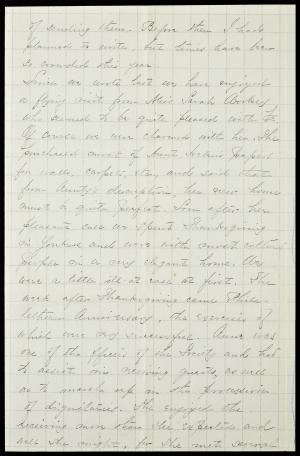 of sending them. Before then I had
planned to write, but times have been
so crowded this year.
Since we wrote last we have enjoyed
a flying visit from Miss Sarah
who seemed to be quite pleased with
Of course we were charmed with her. She
purchased most of Aunt papers
for walls, carpets, etc, and said that
from Aunty's description, her new home
must be quite perfect. Soon after her
pleasant call we spent Thanksgiving
in Yonkers and were with most cultured
people in a very elegant home. We
were a little ill-at-ease at first. The
week after Thanksgiving came Philo-
lethean Anniversary, the exercises of
which were very successful. Anna was
one of the officers of the Society and had
to assist in receiving guests, as well
as to march up in the procession
of dignitaries. She enjoyed the
receiving more than she expected and
was she might, for she met several